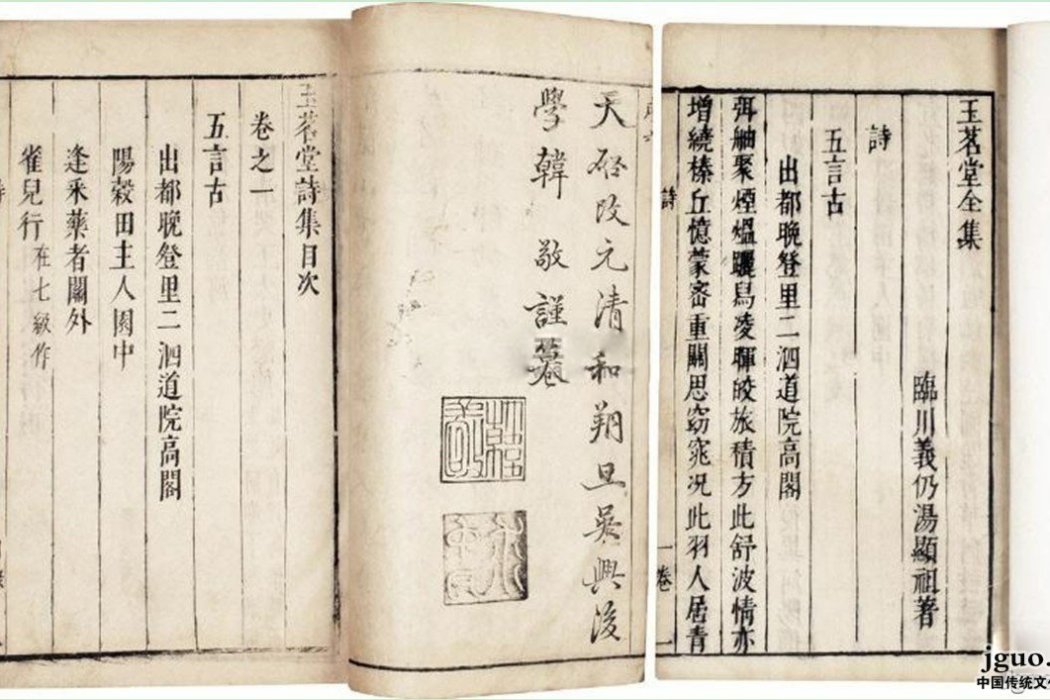 玉茗堂全集
臨川義仍湯顯祖著
詩
五言古
出都晚登里二泗道院高閣
弭舳聚煙熅曬鳥凌暉皎旅積方此舒波情亦
增繞榛丘憶蒙密重關思窈窕况此羽人居青
詩
一卷
一
天啓改元清和朔旦吳興後
學韓敬謹
玉茗堂詩集目次
卷之一
五言古
出都晚登里二泗道院高閣
陽穀田主人園中
逢采藥者關外
雀兒行在七級作
jguo.
中国传统文